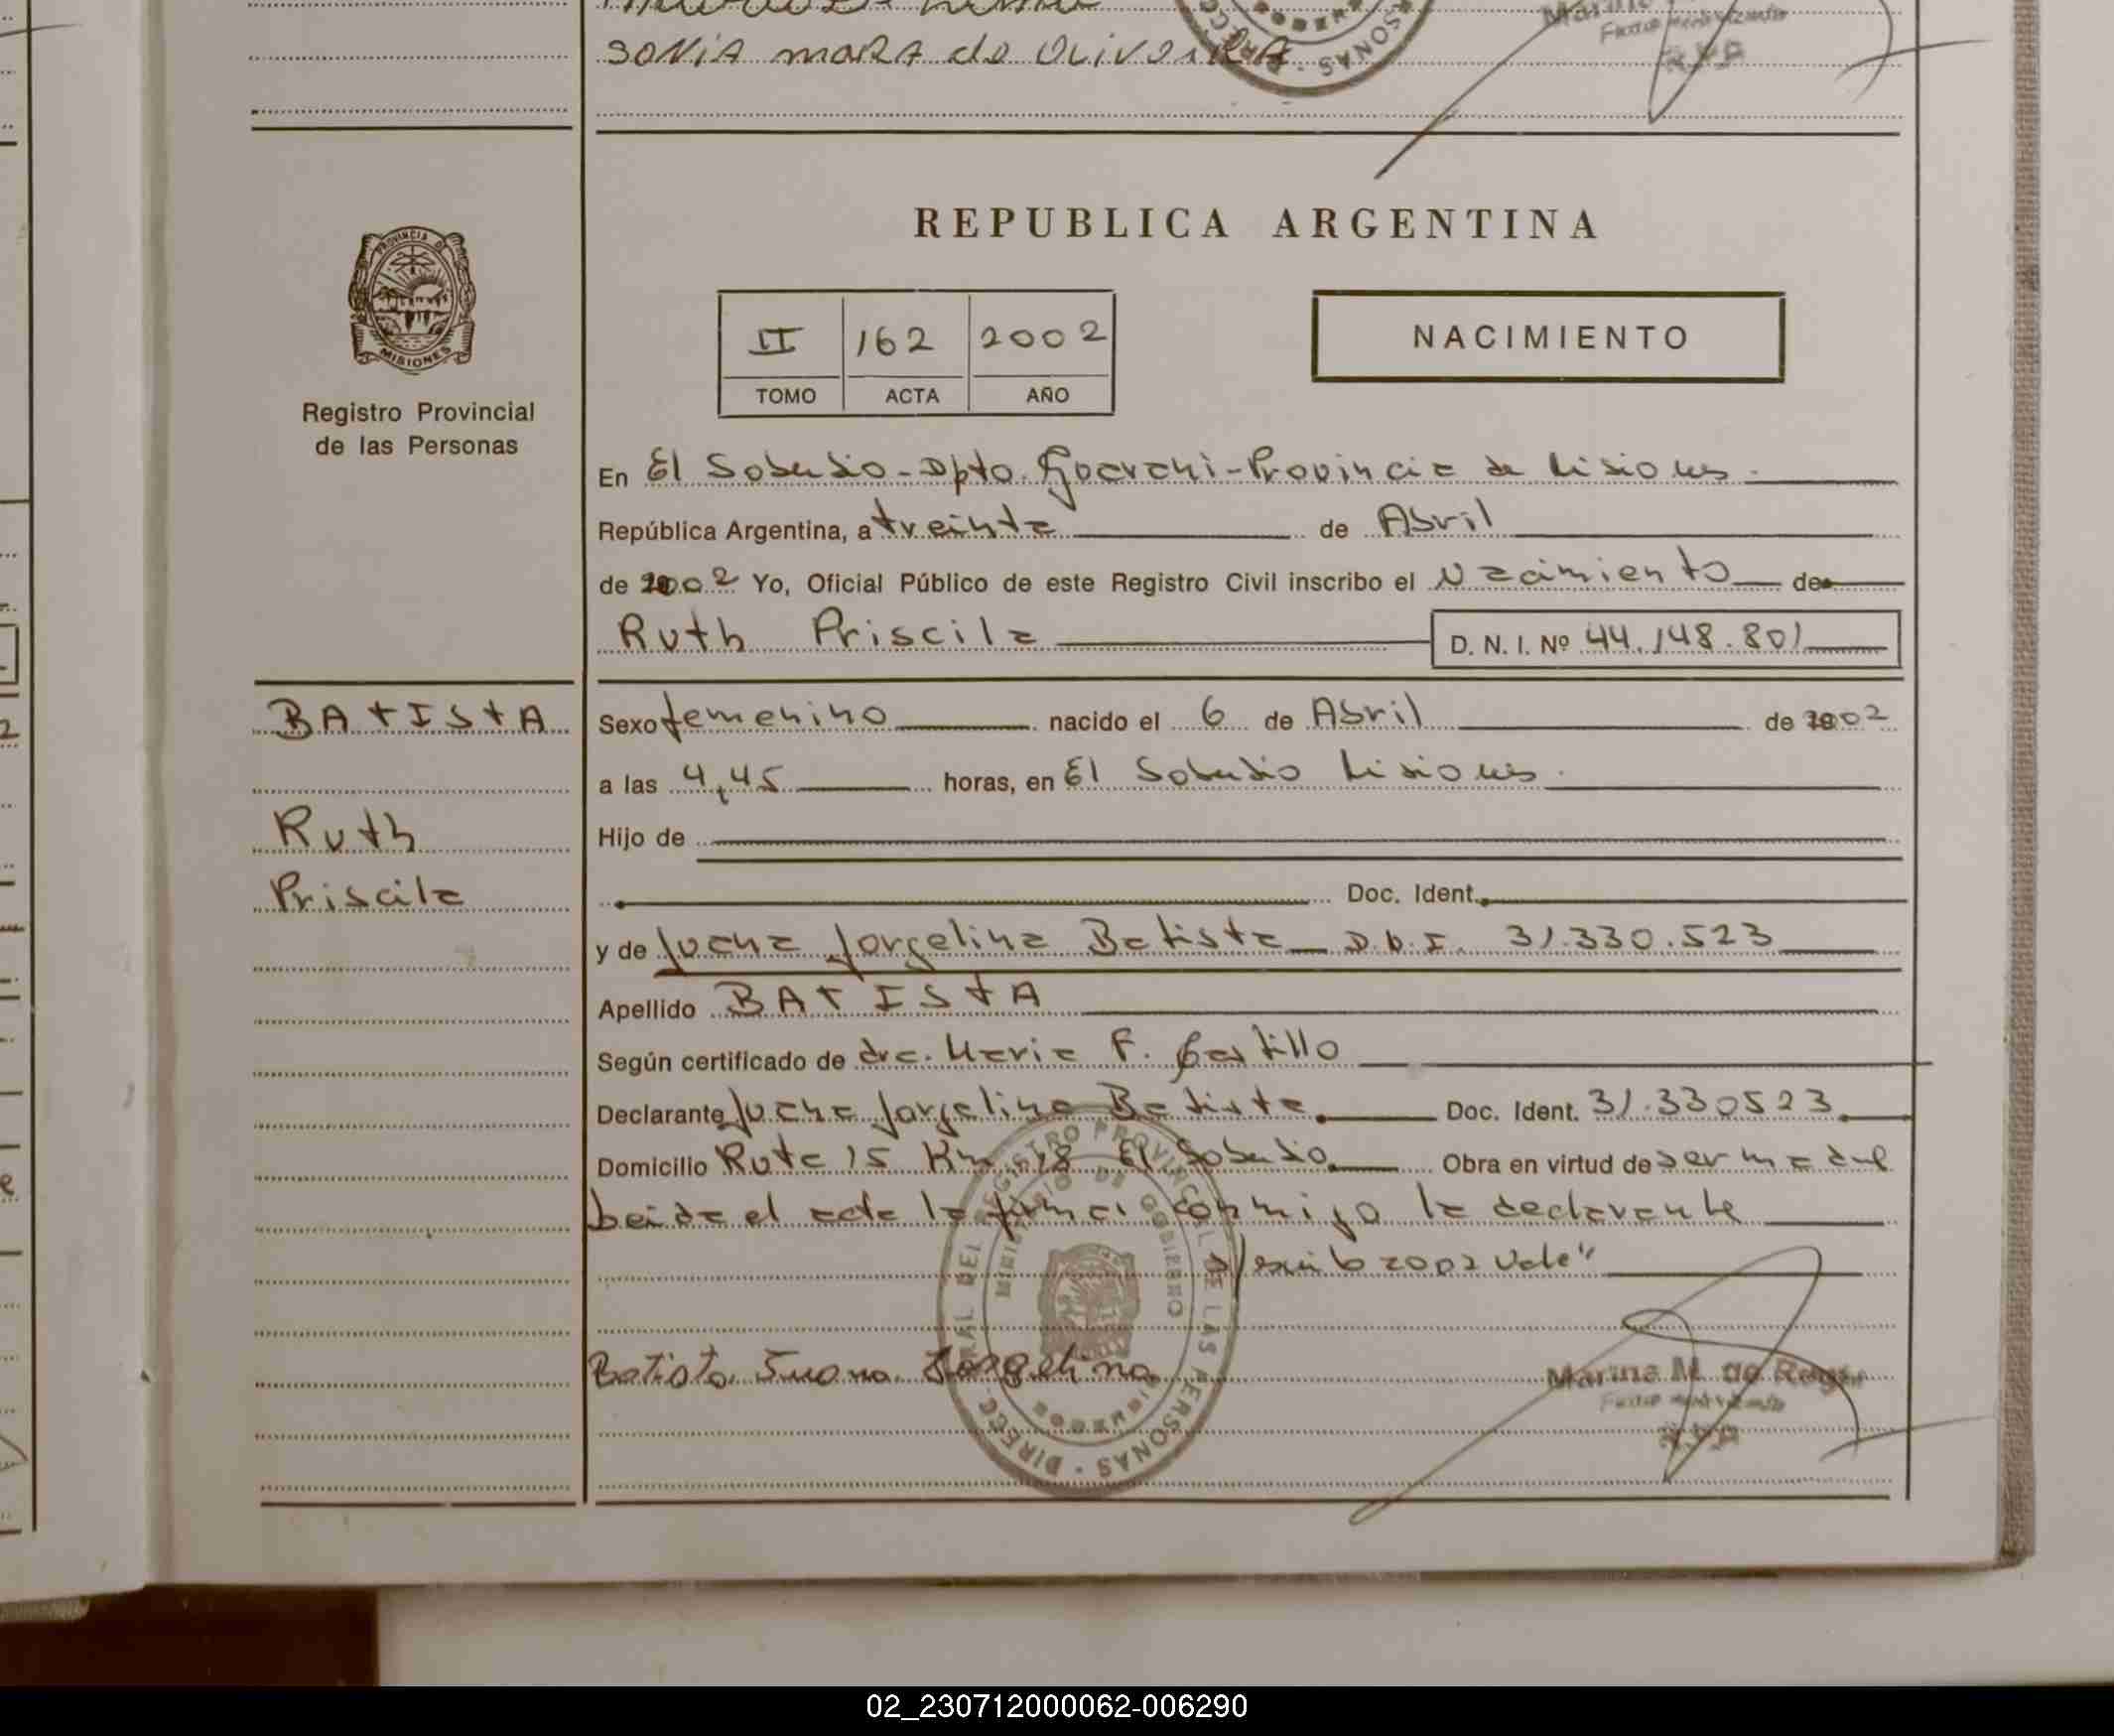 SONIA MARA de OLIVEIRA
REPUBLICA ARGENTINA
PROVINCIA DE
MISIONES
II 162 2002
TOMO ACTA AÑO
NACIMIENTO
Registro Provincial
de las Personas
En El Soberbio - Dpto. Guarani - Provincia de Misiones.
República Argentina, a treinta de Abril
de 2002 Yo, Oficial Público de este Registro Civil inscribo el Nacimiento de
Ruth Priscila D. N. I. Nº 44.148.801
BATISTA
Ruth
Priscila
Sexo femenino nacido el 6 de Abril de 2002
a las 4,45 horas, en El Soberbio Misiones.
Hijo de
Doc. Ident.
y de Juana Jorgelina Batista D.N.I. 31.330.523
Apellido BATISTA
Según certificado de dra. Maria F. Castillo
Declarante Juana Jorgelina Batista Doc. Ident. 31.330523
Domicilio Ruta 15 Km 18 El Soberbio Obra en virtud de ser madre
leida el acta la firma conmigo la declarante
2002 Vale"
Batista Juana Jorgelina
DIREC. GRAL DEL REGISTRO PROVINCIAL DE LAS PERSONAS
MINISTERIO DE GOBIERNO
Marina M. de
02_230712000062-006290